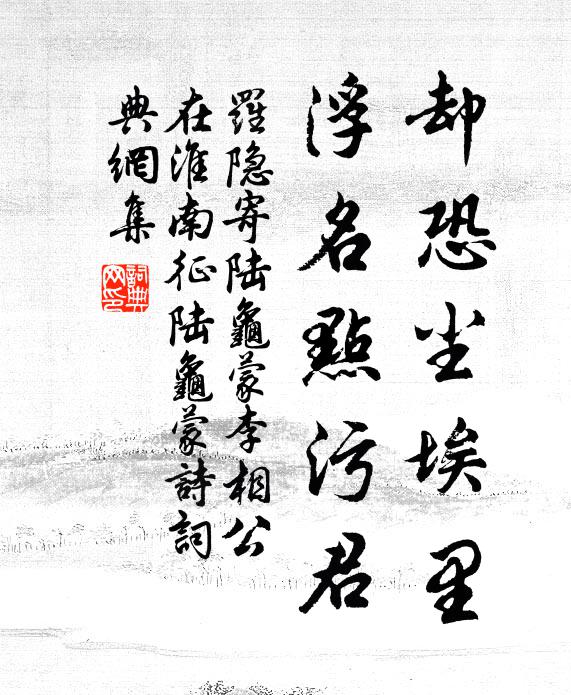 却恐尘埃里
浮名點污君
羅隐寄陆龜蒙李相公
在淮南征陆龜蒙詩詞
典網集
詞典网印